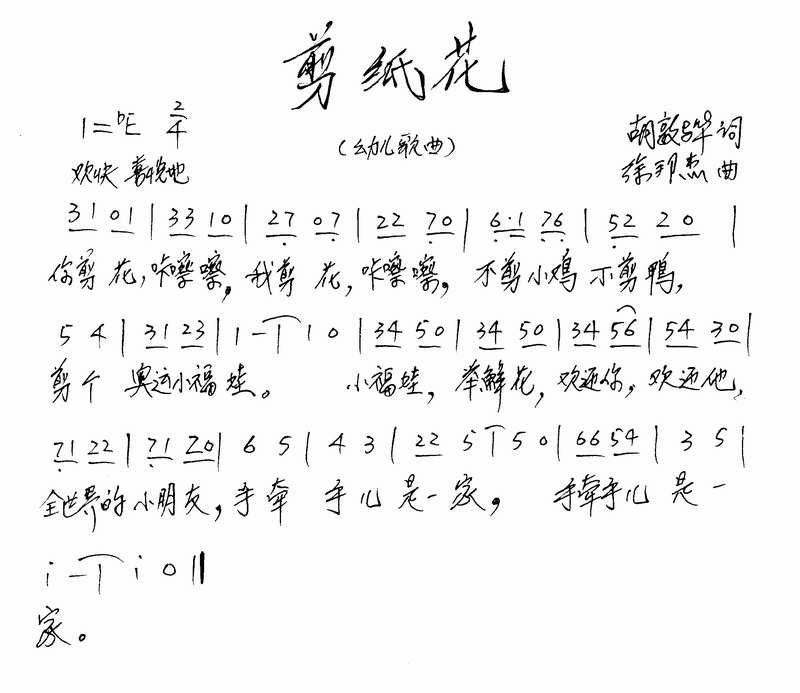 剪纸花
1=bE 2/4
(幼儿歌曲)
胡敦骅词
欢快 喜悦地
徐邦杰曲
31 01 | 33 10 | 27 07 | 22 70 | 6·1 76 | 52 20 |
你剪花,咔嚓嚓。我剪花,咔嚓嚓。不剪小鸡不剪鸭,
5 4 | 31 23 | 1 - | 1 0 | 34 50 | 34 50 | 34 56 | 54 30 |
剪个 奥运小福娃。 小福娃,举鲜花,欢迎你,欢迎他,
71 22 | 71 20 | 6 5 | 4 3 | 22 5 | 5 0 | 66 54 | 3 5 |
全世界的小朋友,手牵 手儿是一家, 手牵手儿 是一
i - | i 0 ‖
家。